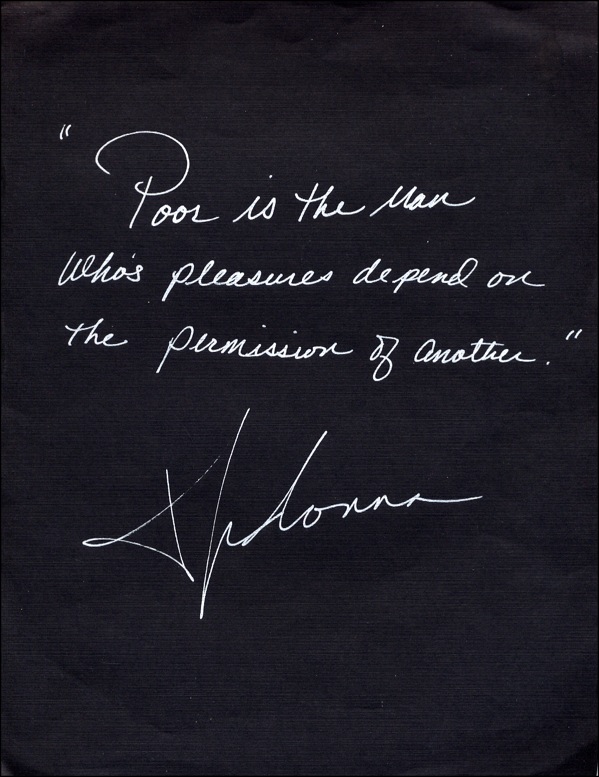 "Poor is the man
who's pleasures depend on
the permission of another."
Madonna